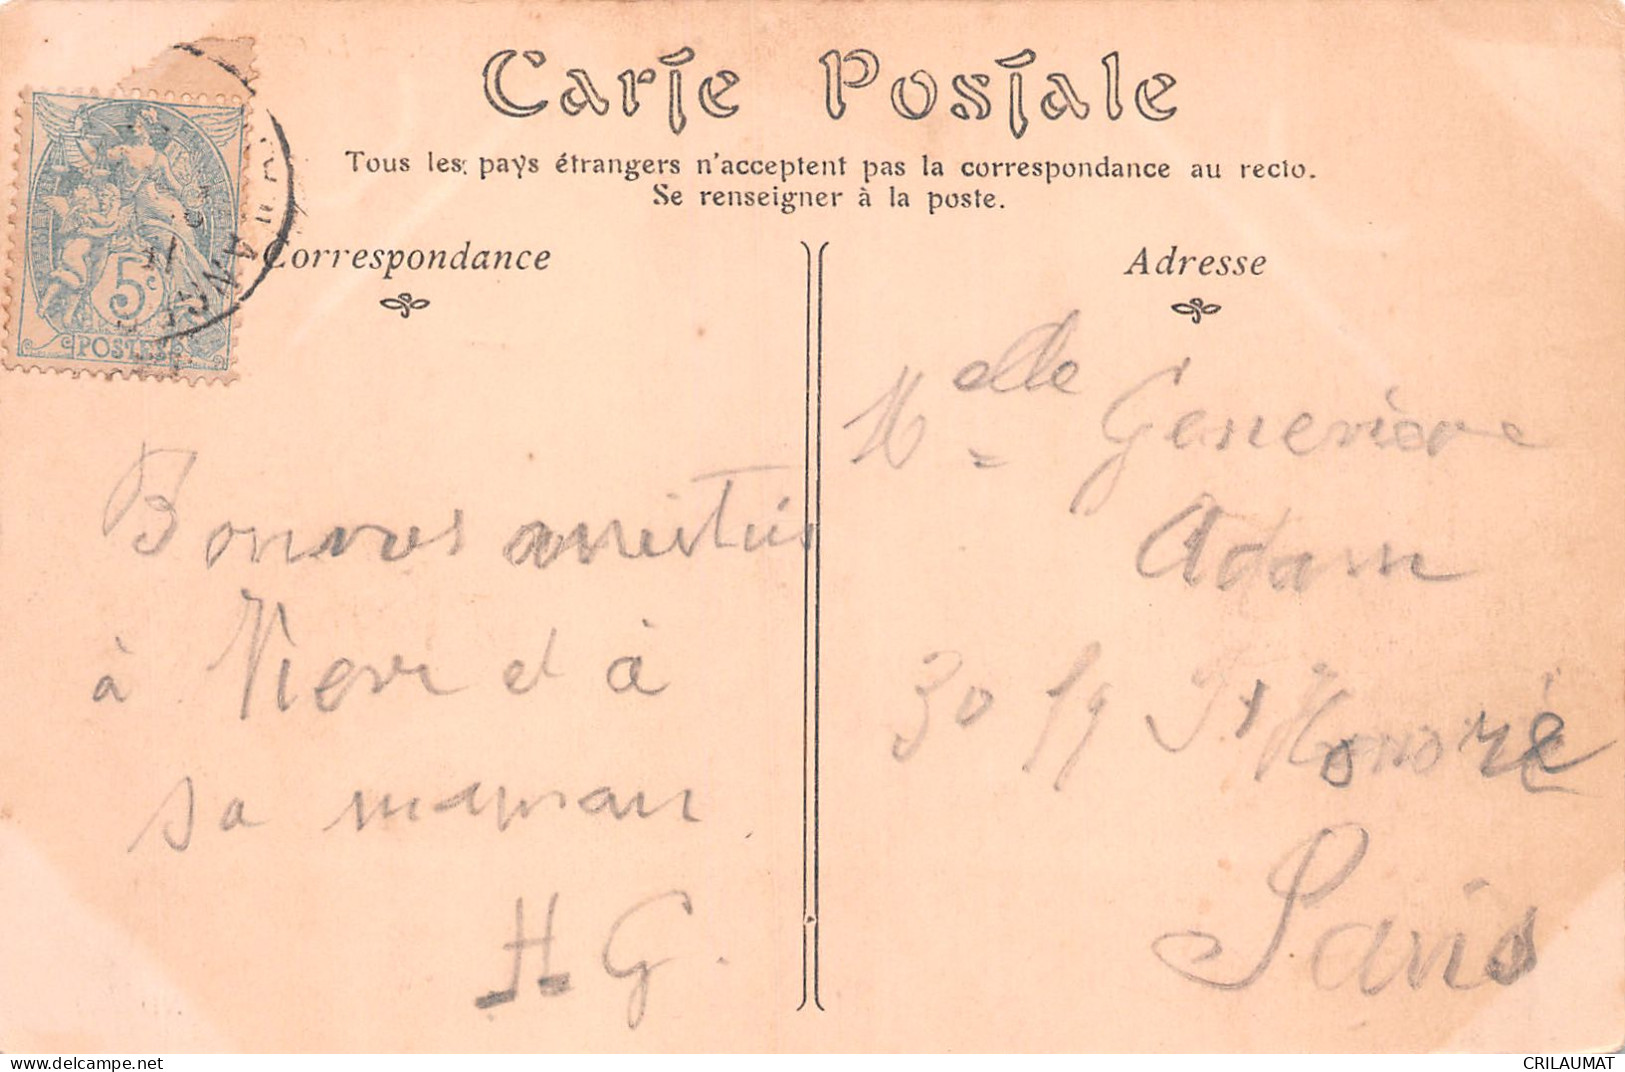 Carte Postale
Tous les pays étrangers n'acceptent pas la correspondance au recto.
Se renseigner à la poste.
Correspondance
Adresse
5c
POSTES
Bonnes amitiés
à et à
sa maman
H. G.
Melle Geneviève
Adam
30 fg St Honoré
Paris
www.delcampe.net
CRILAUMAT